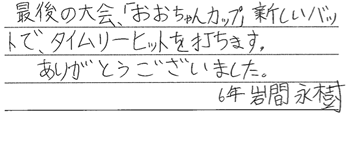 最後の大会、「おおちゃんカップ」新しいバッ
トで、タイムリーヒットを打ちます。
ありがとうございました。
6年 岩間永樹